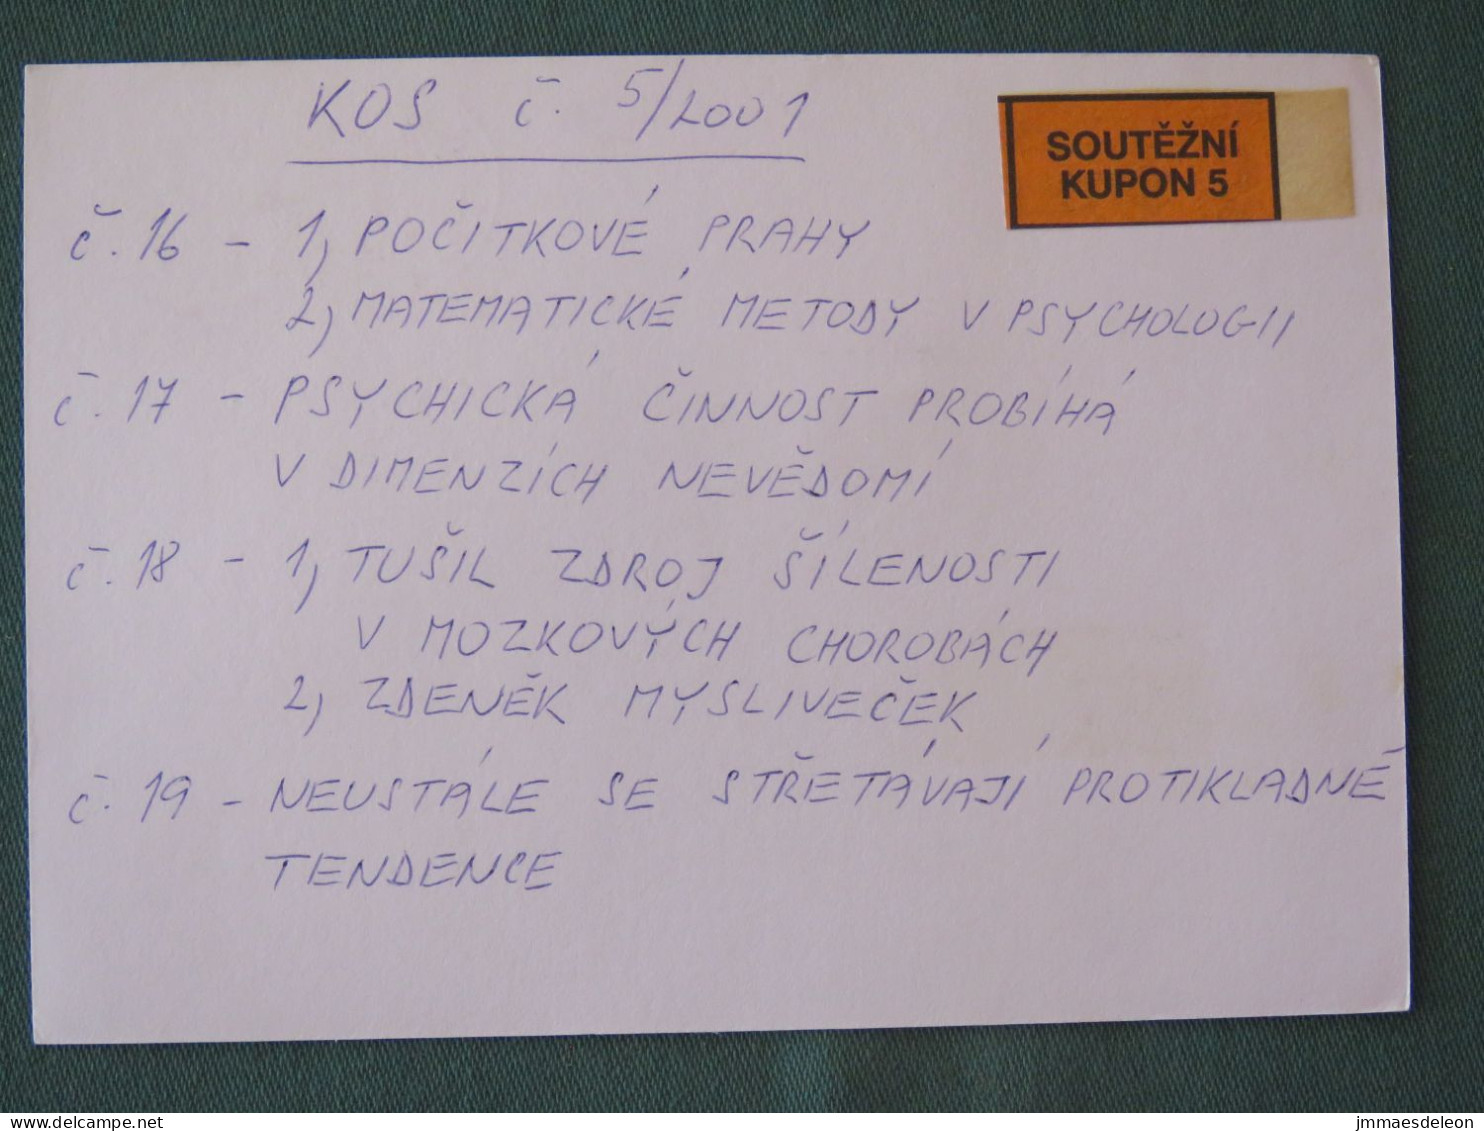 KOS č. 5/2001
SOUTĚŽNÍ
KUPON 5
č. 16 - 1, POČITKOVÉ PRAHY
2, MATEMATICKÉ METODY V PSYCHOLOGII
č. 17 - PSYCHICKÁ ČINNOST PROBÍHÁ
V DIMENZÍCH NEVĚDOMÍ
č. 18 - 1, TUŠIL ZDROJ ŠÍLENOSTI
V MOZKOVÝCH CHOROBÁCH
2, ZDENĚK MYSLIVEČEK
č. 19 - NEUSTÁLE SE STŘETÁVAJÍ PROTIKLADNÉ
TENDENCE
delcampe.net
jmmaesdeleon